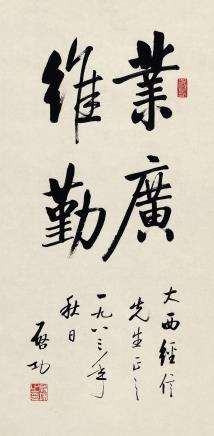 業廣
維勤
大西經信
先生正之
一九八三年
秋日
啓功